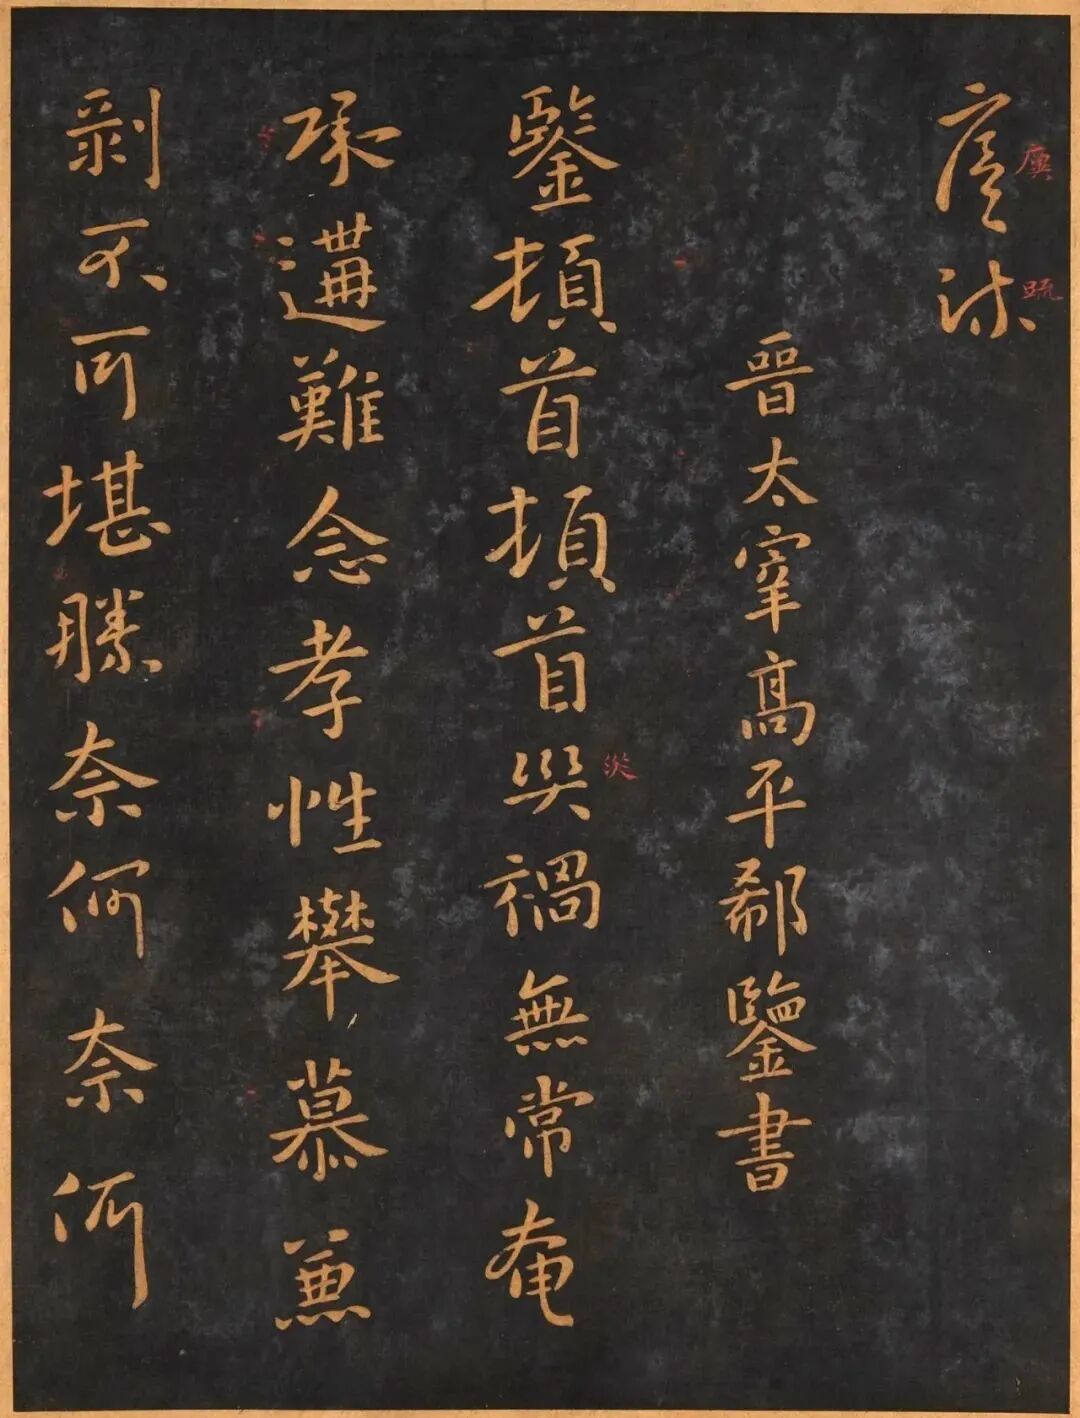 廙疏
廙 疏
晉太宰高平郗鑒書
鑒頓首頓首災禍無常奄
災
承遘難念孝性攀慕兼
剝不可堪勝奈何奈何